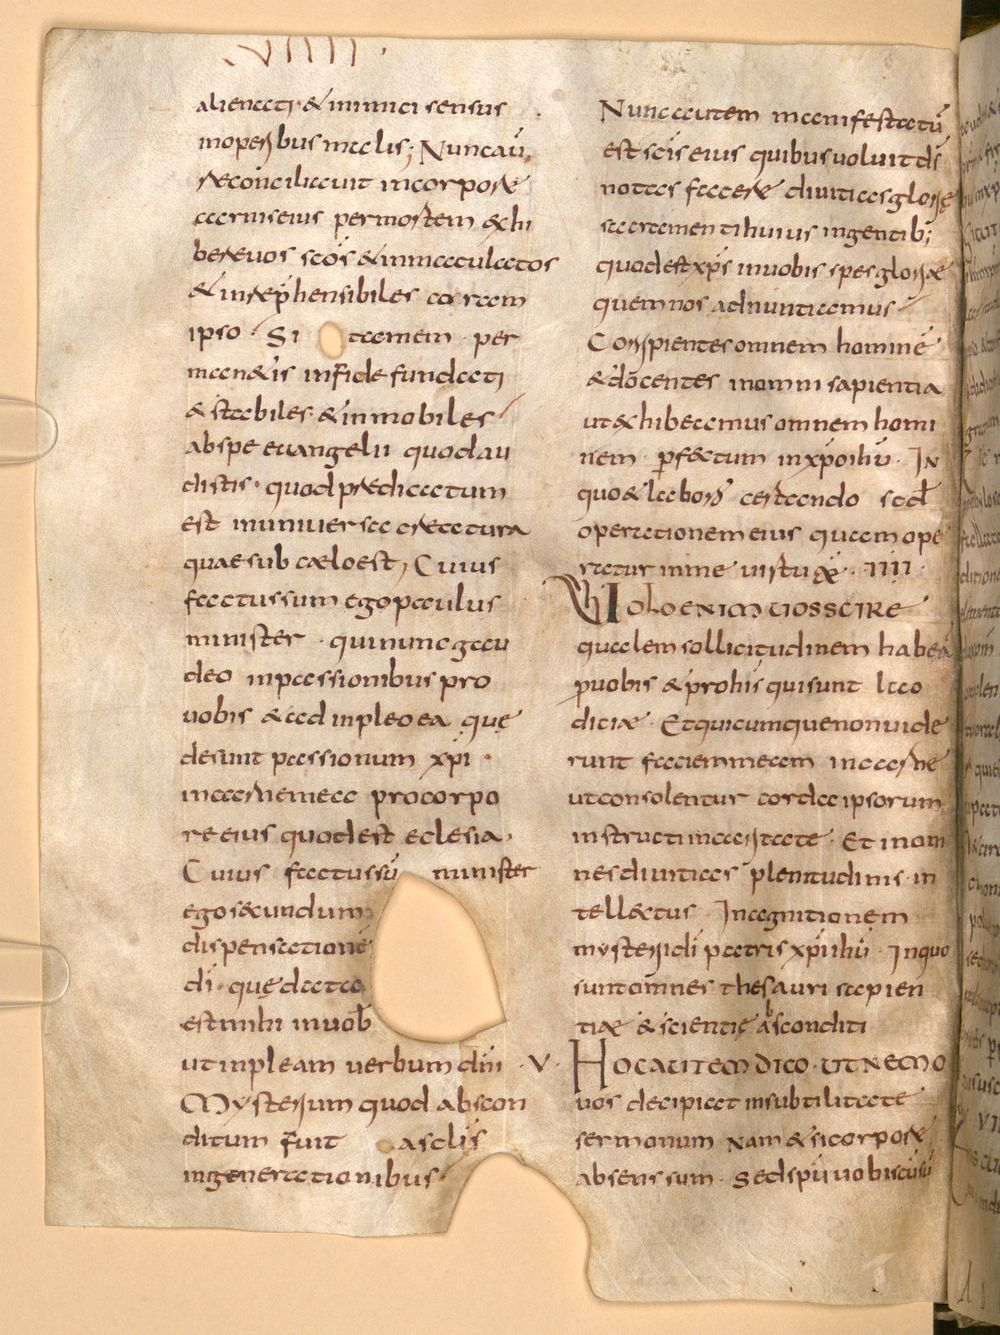 VIIII
alienati · & inimici sensus
inoperibus malis; Nuncaū,
reconciliauit incorpore
carniseius permortem exhi
bereuos sc̄ōs & inmaculatos
& inrep̄hensibiles coram
ipso · Si tamen per
man&is infide fundati
& stabiles · & inmobiles
abspe euangelii quodau
distis · quod praedicatum
est inuniuersa creatura
quae sub caelo est, Cuius
factus sum ego paulus
minister · qui nunc gau
deo inpassionibus pro
uobis & ad inpleo ea quę
desunt passionum xp̄i ·
incarnemea procorpo
re eius quod est eclesia ·
Cuius factus sū minister
ego secundum
dispensationē
di · quę data
est mihi inuob̄
ut inpleam uerbum dn̄i
Mysterium quod abscon
ditum fuit asclis
ingenerationibus ·
Nunc autem manifestatū
est sc̄is eius quibus uoluit ds̄
notas facere diuitias glorię
sacramenti huius ingentib;
quod est xp̄s inuobis spes gloriae
quem nos adnuntiamus
Corripientes omnem hominē
& docentes inomni sapientia
ut exhibeamus omnem homi
nem perfectum inxp̄o ihū · In
quo & labor̄ certando scd̄
operationem eius quam ope
ratur inme uirtute · IIII ·
Uolo enim uos scire
qualem sollicitudinem habeā
p̱ uobis & pro his qui sunt lao
diciae · Et quicumque non uide
runt faciem meam incarne
ut consolentur corda ipsorum
instructi incaritate · Et inom
nes diuitias plenitudinis in
tellectus · Inagnitionem
mysterii di patris xp̄i ihū · In quo
sunt omnes thesauri sapien
tiae & scientię absconditi
· V · Hoc autem dico · ut nemo
uos decipiat insubtilitate
sermonum Nam & si corpore
absens sum · Sed sp̄u uobiscū sū